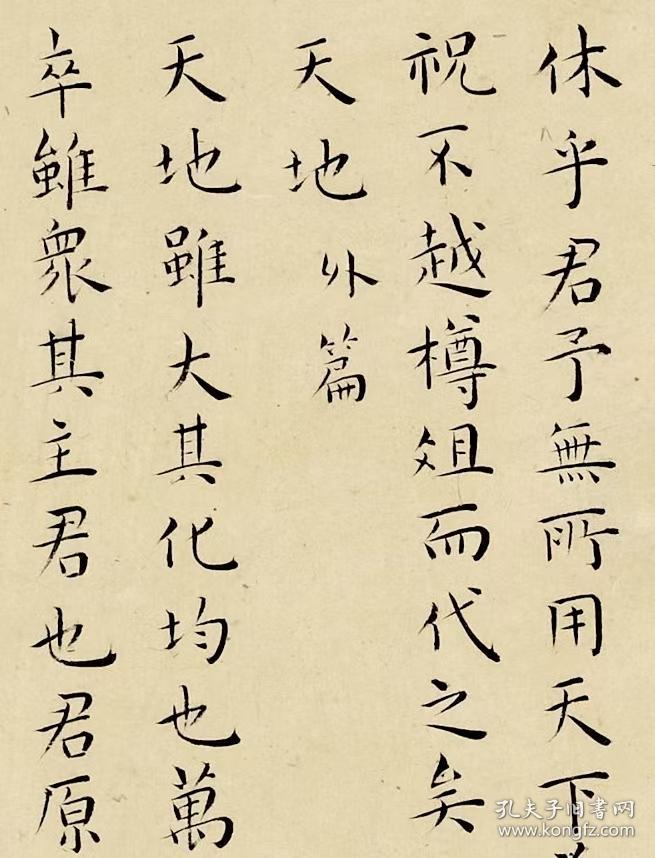 休乎君予無所用天下
祝不越樽俎而代之矣
天地 外篇
天地雖大其化均也萬
卒雖眾其主君也君原
孔夫子旧书网
www.kongfz.com